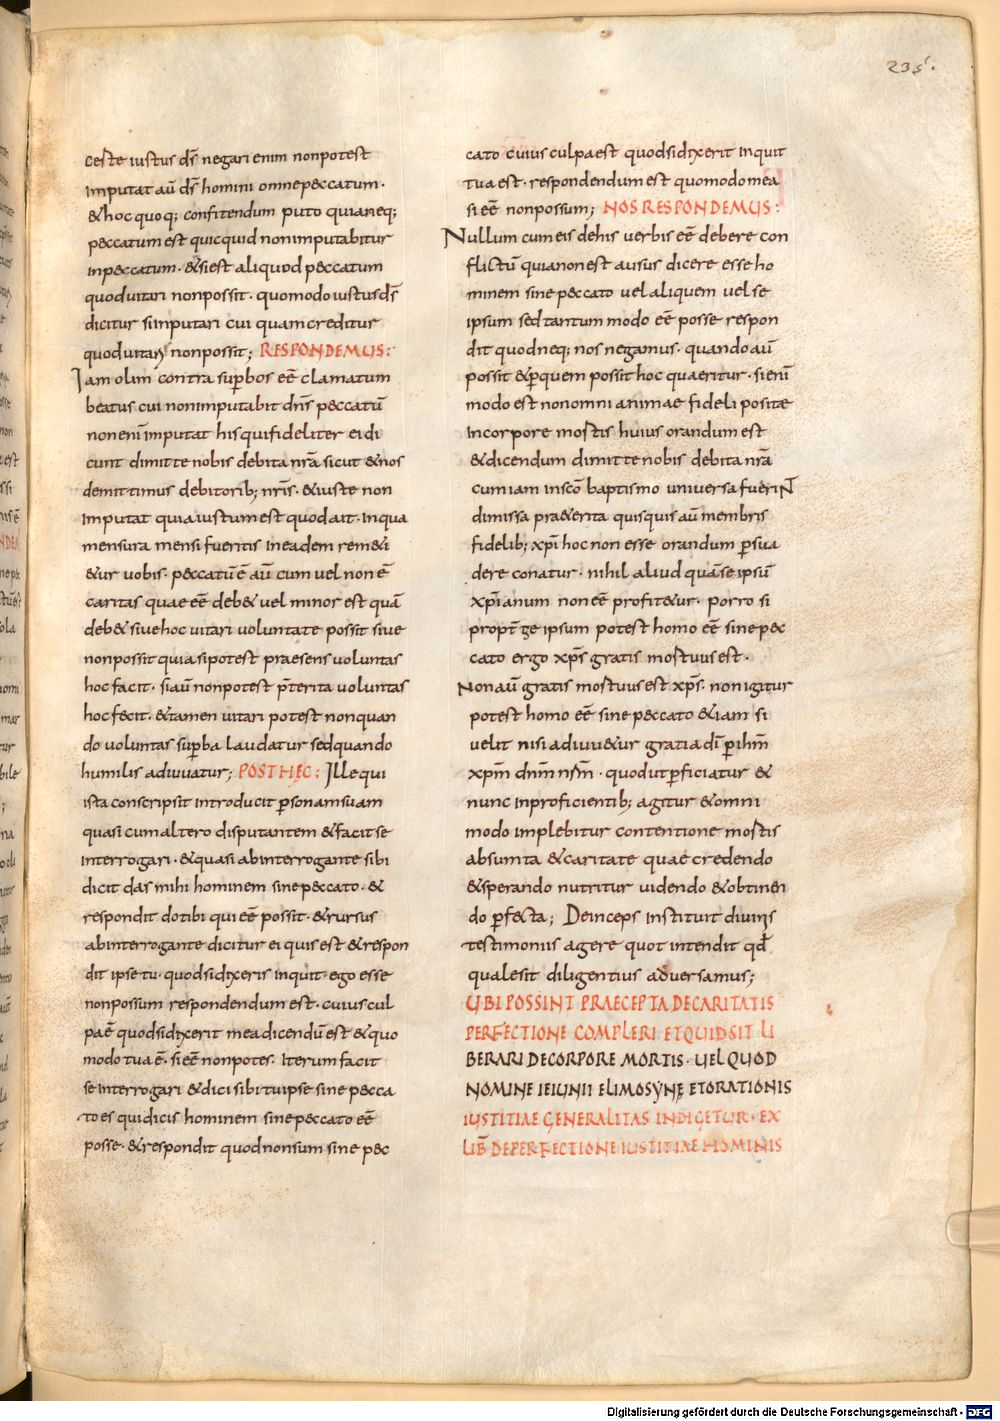 235.
ceste iustus ds̄ negari enim nonpotest
imputat aū ds̄ homini omnepeccatum·
&hoc quoq; confitendum puto quianeq;
peccatumest quicquid nonimputabitur
inpeccatum· &siest aliquod peccatum
quoduitari nonpossit· quomodoiustusds̄
dicitur siimputari cui quamcreditur
quoduitari nonpossit; RESPONDEMUS:
Iam olim contra sup̄bos eē clamatum
beatus cui nonimputabit dn̄s peccatū
nonenīimputat his quifideliter ei di
cunt dimittenobis debita nr̄a sicut &nos
demittimus debitorib; nr̄is· &iuste non
imputat quiaiustumest quodait· Inqua
mensura mensi fueritis ineadem rem&i
&ur uobis· peccatū ē aū cum uel non ē
caritas quae eē deb& uel minor est quā
deb& siuehoc uitari uoluntate possit siue
nonpossit quiasipotest praesens uoluntas
hoc facit· siaū nonpotest p̄terita uoluntas
hoc fecit· &tamen uitari potest nonquan
do uoluntas sup̄ba laudatur sedquando
humilis adiuuatur; POSTHĘC: Ille qui
ista conscripsit introducit p̄sonamsuam
quasi cumaltero disputantem &facitse
interrogari· &quasi abinterrogante sibi
dicit das mihi hominem sinepeccato· &
respondit dotibi qui eē possit· &rursus
abinterrogante dicitur ei quis est &respon
dit ipse tu· quodsidixeris inquit· ego esse
nonpossum respondendum est· cuius cul
paē quodsidixerit mea dicendū est &quo
modo tua ē· si eē nonpotes· Iterum facit
se interrogari &dici sibi tuipse sine pecca
to es quidicis hominem sinepeccato eē
posse· &respondit quodnonsum sine pec
cato cuius culpaest quodsidixerit inquit
tua est· respondendum est quomodo mea
si eē nonpossum; NOS RESPONDEMUS:
Nullum cum eis dehis uerbis eē debere con
flictū quianonest ausus dicere esse ho
minem sine peccato uel aliquem uel se
ipsum sed tantum modo eē posse respon
dit quodneq; nos negamus· quando aū
possit &p̄quem possit hoc quaeritur· si enī
modo est nonomni animae fideli positae
incorpore mortis huius orandum est
&dicendum dimittenobis debita nr̄a
cumiam insc̄o baptismo uniuersa fuerint
dimissa praeterita quisquis aū membris
fidelib; xp̄i hoc non esse orandum p̄sua
dere conatur· nihil aliud quāse ipsū
xp̄ianum non eē profit&ur· Porro si
propt̄ se ipsum potest homo eē sine pec
cato ergo xp̄s gratis mortuus est·
Nonaū gratis mortuus est xp̄s· nonigitur
potest homo eē sine peccato &iam si
uelit nisi adiuu&ur gratia dī p̄ihm̄
xpm̄ dnm̄ nr̄m· quod ut p̄ficiatur &
nunc inproficientib; agitur &omni
modo implebitur contentione mortis
absumta &caritate quae credendo
&sperando nutritur uidendo &obtinen
do p̄fecta; Deinceps instituit diuinis
testimoniis agere quot intendit qđ
qualesit diligentius aduersamus;
UBI POSSINT PRAECEPTA DE CARITATIS
PERFECTIONE COMPLERI ET QUID SIT LI
BERARI DE CORPORE MORTIS· UEL QUOD
NOMINE IEIUNII ELIMOSYNĘ ET ORATIONIS
IUSTITIAE GENERALITAS INDICETUR· EX
LIB̄ DE PERFECTIONE IUSTITIAE HOMINIS
Digitalisierung gefördert durch die Deutsche Forschungsgemeinschaft - DFG